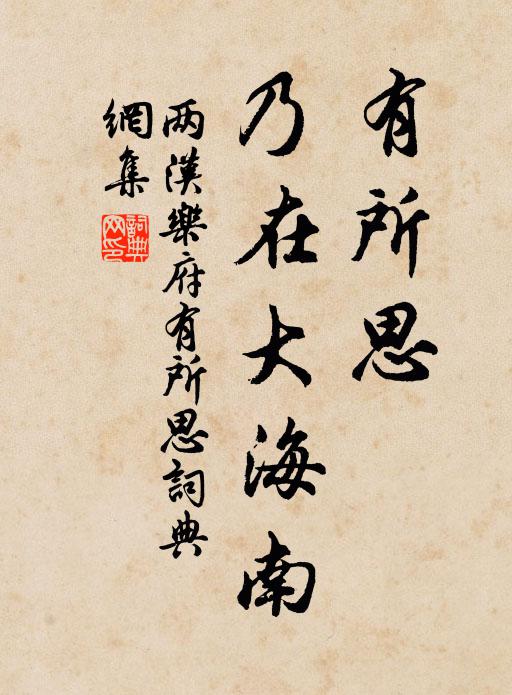 有所思
乃在大海南
两漢樂府有所思詞典
網集
詞典网印